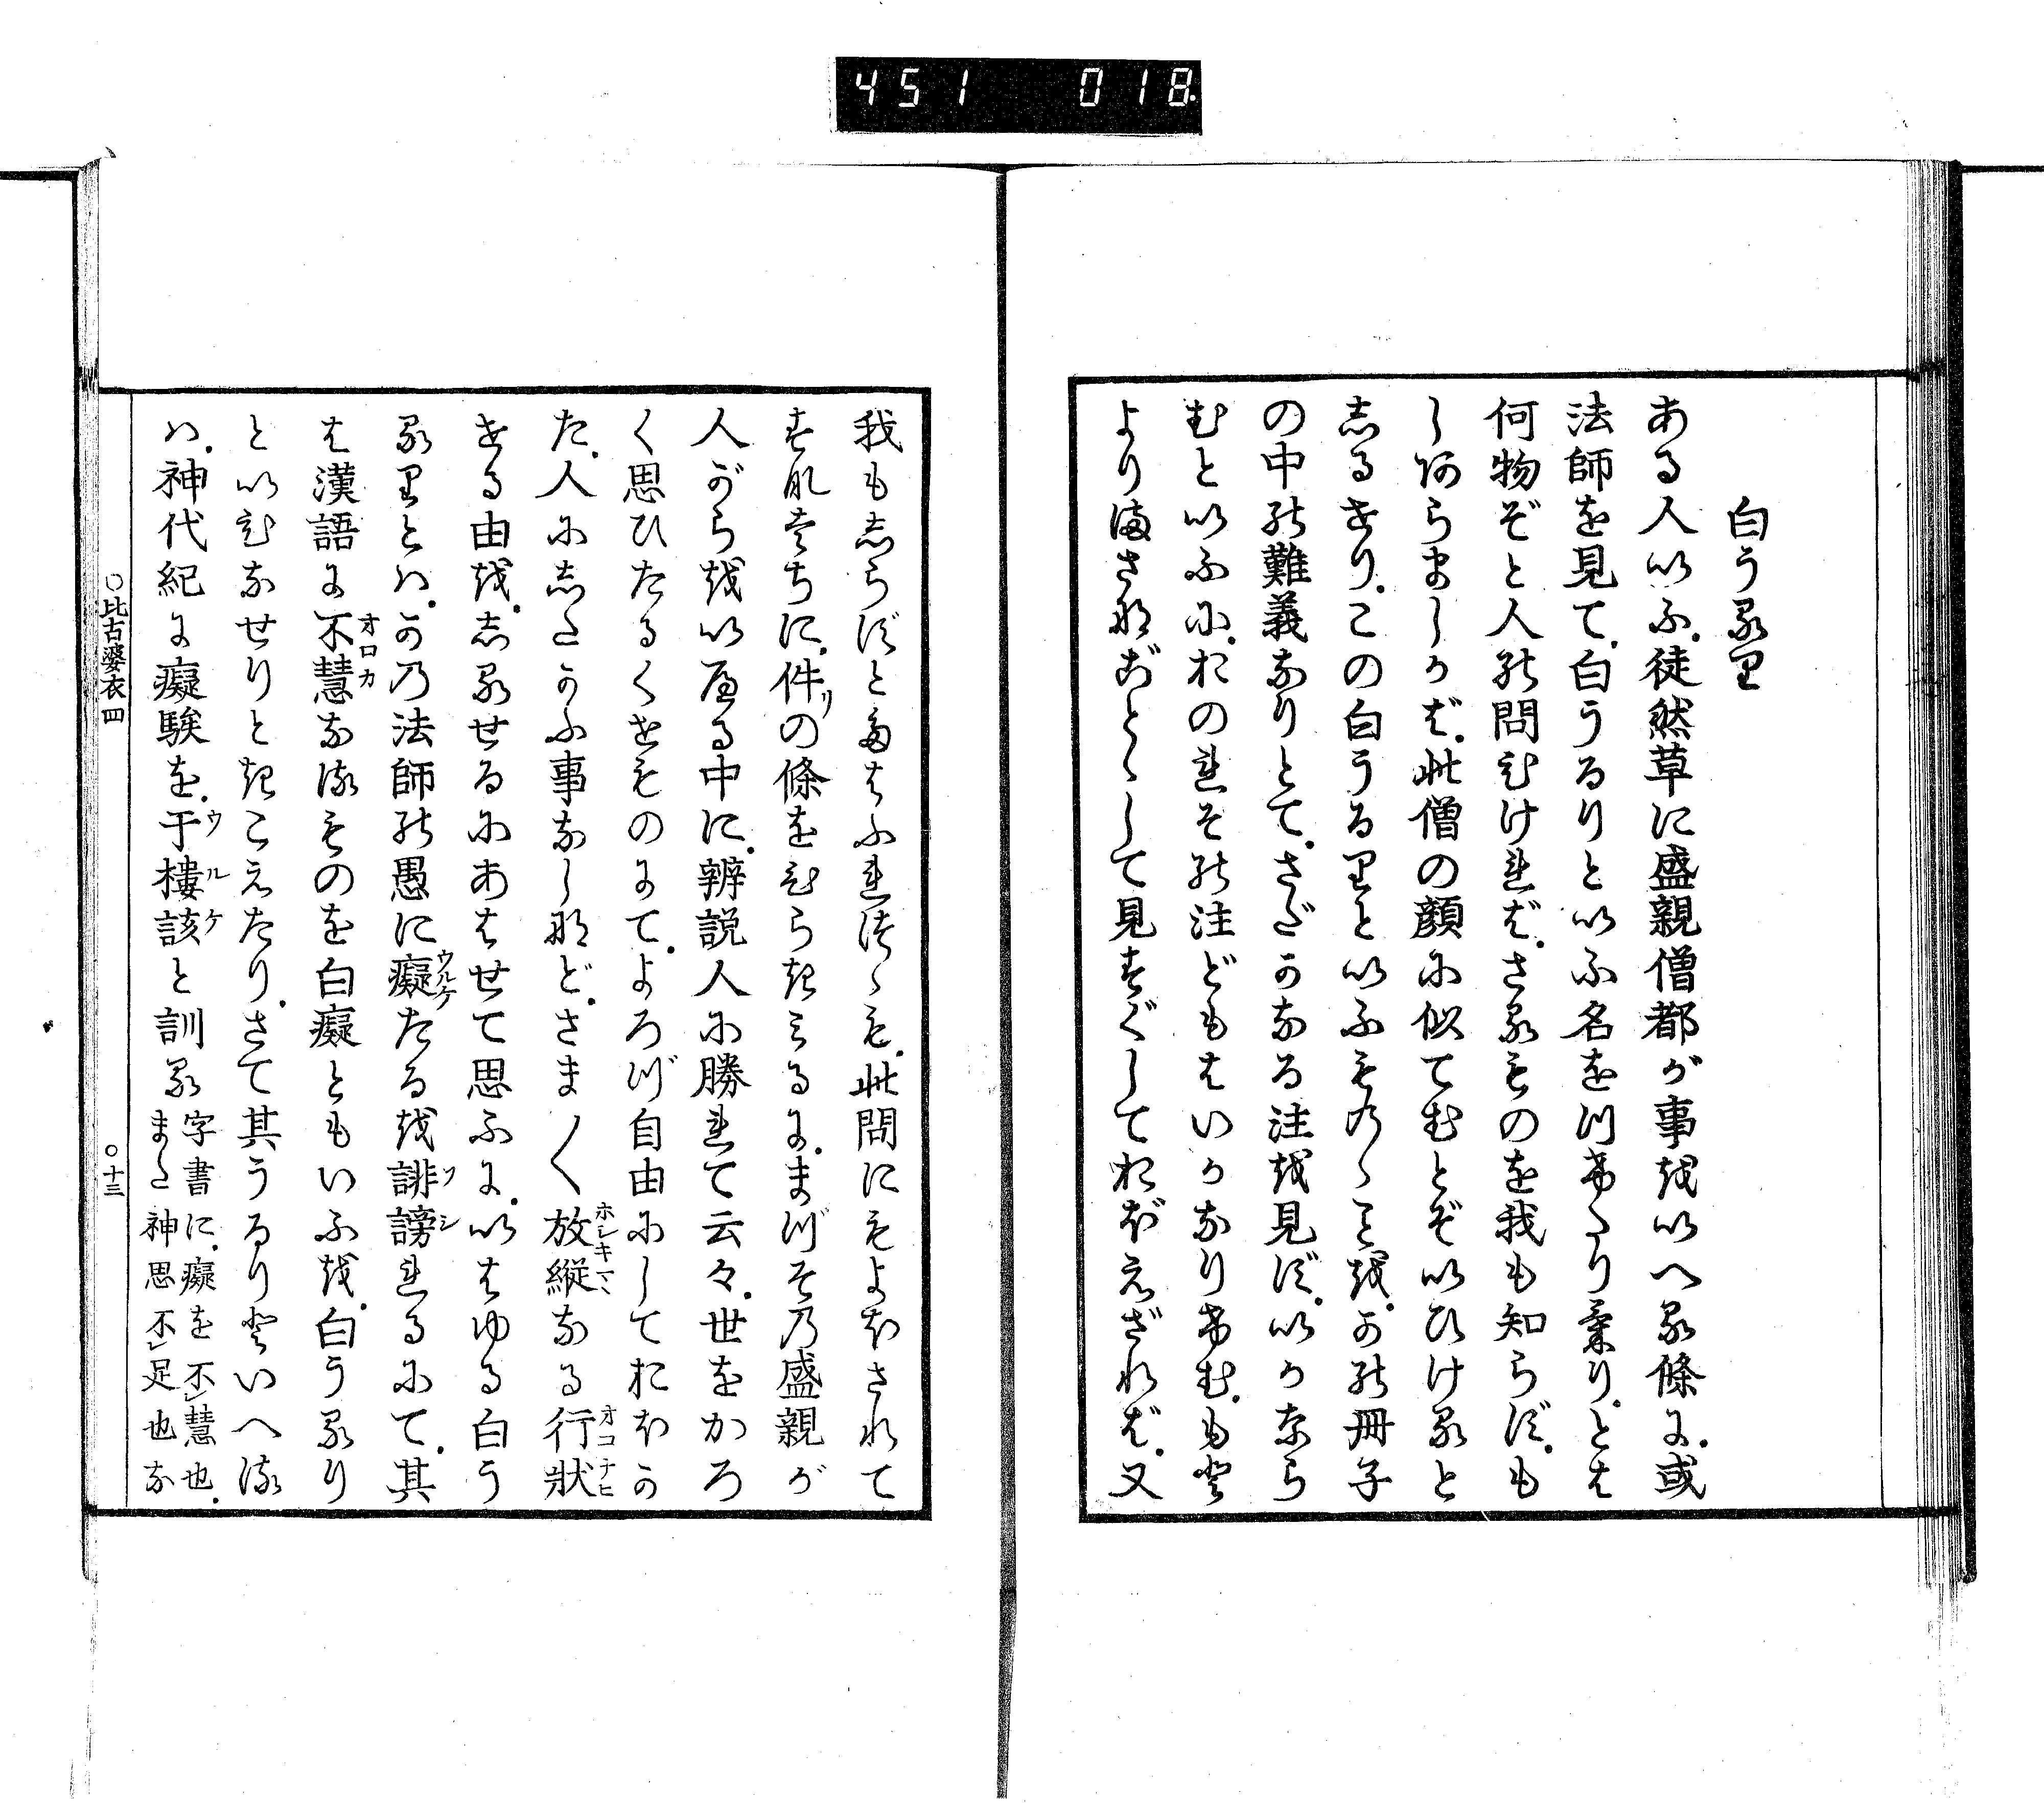 451 018
白うるり
ある人いふ、徒然草に盛親僧都が事をいへる條に、或
法師を見て、白うるりといふ名をつけたりけり、とは
何物ぞと人の問ひければ、さるものを我も知らず、も
しあらましかば、此僧の顔に似てむとぞいひけると
しるせり、この白うるりといふもの、ことを、かの冊子
の中の難義なりとて、さだかなる注を見ず、いかなら
むといふに、おのれその注どもはいかなりけむ、もと
よりまさなごと〻して見すぐしておぼえざれば、又
我もしらずとたはふれつ〻も、此問にもよほされて
すなはちに、件リの條をひらきみるに、まづその盛親が
人がらをいへる中に、辨説人に勝れて云々、世をかろ
く思ひたるくせものにて、よろづ自由にしておほか
た、人にしたがふ事なしなど、さま〱放縦ホシキマヽなる行狀オコナヒ
せる由を、しるせるにあはせて思ふに、いはゆる白う
るりとハ、かの法師の愚に癡ウルケたるを誹謗ソシれるにて、其
は漢語に不慧オロカなるものを白癡ともいふを、白うるり
といひなせりときこえたり、さて其うるりといへる
ハ、神代紀に癡騃を、于樓該ウルケと訓る
字書に、癡を不レ慧也、
また神思不レ足也な
○比古婆衣四
○十三